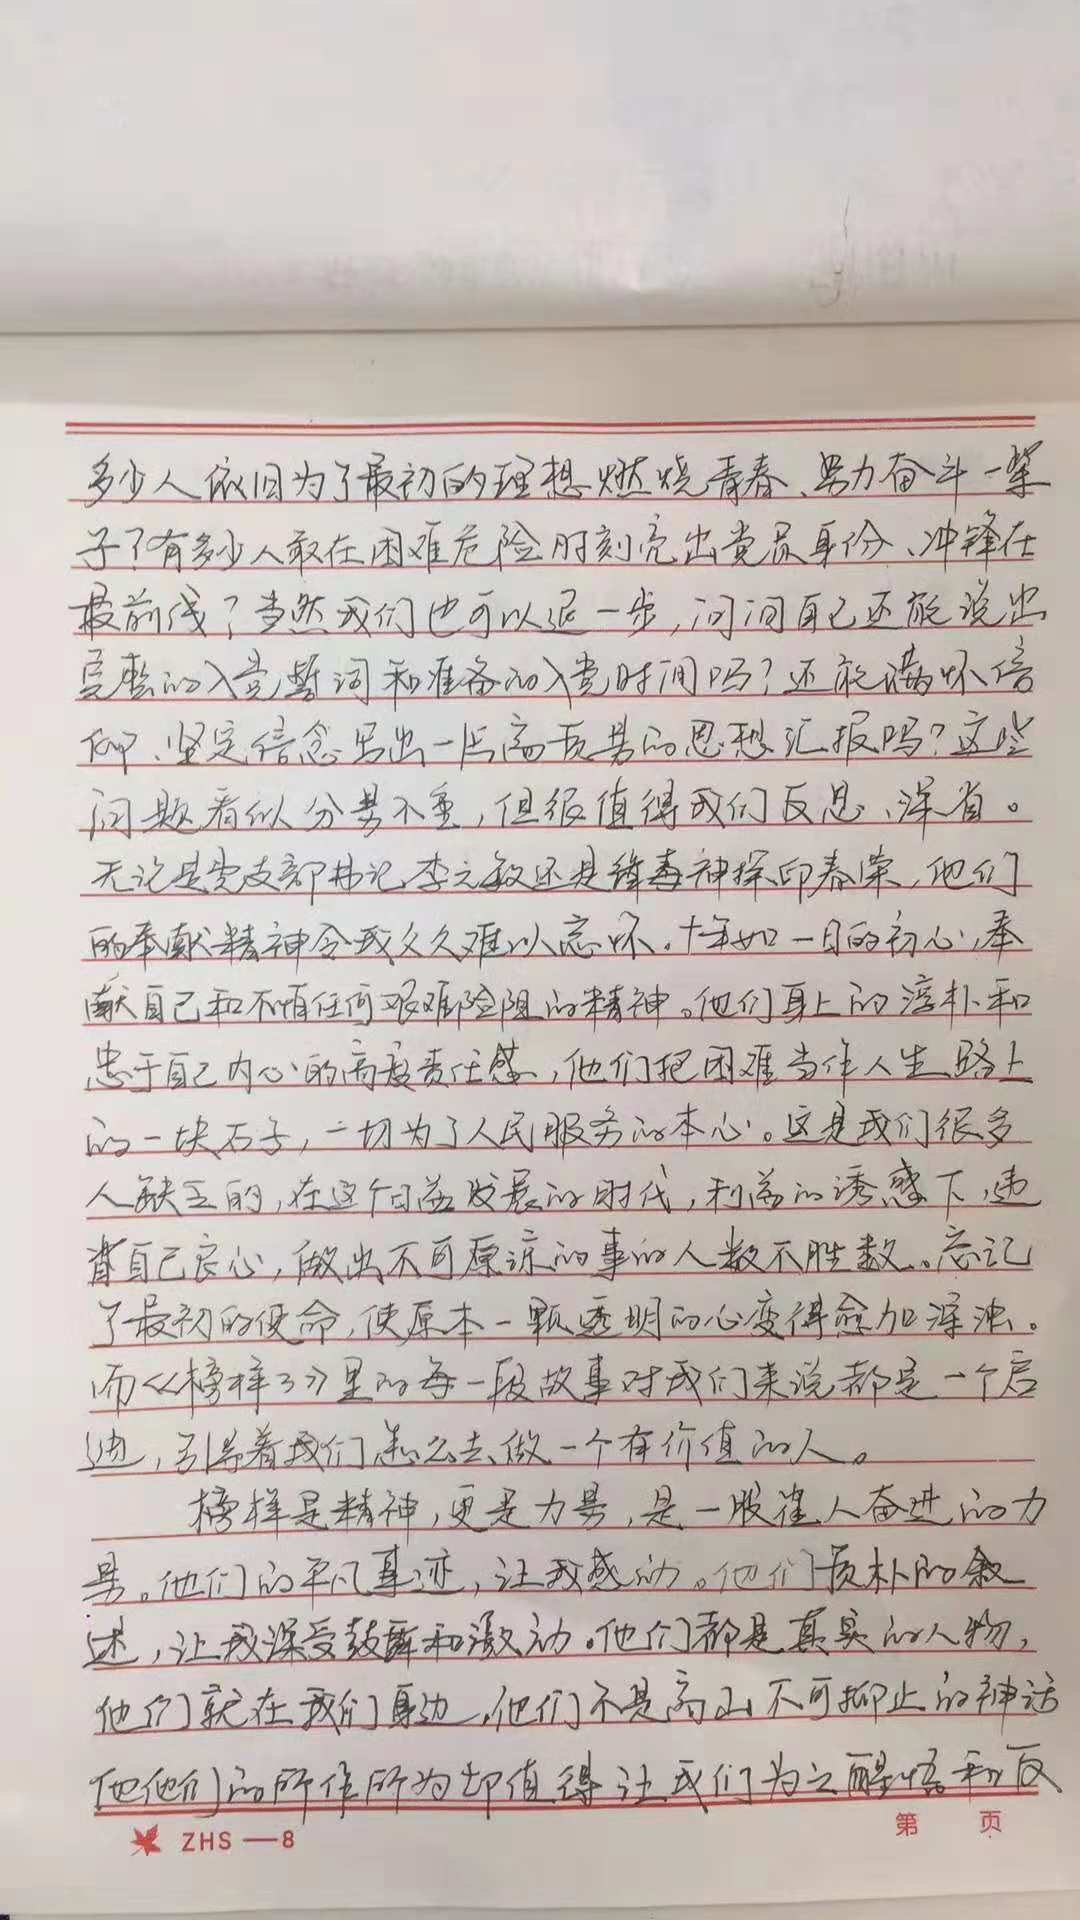 多少人依旧为了最初的理想燃烧青春、努力奋斗一辈
子？有多少人敢在困难危险时刻亮出党员身份、冲锋在
最前线？当然我们也可以退一步，问问自己还能说出
完整的入党誓词和准备的入党时间吗？还能满怀信
仰、坚定信念写出一片高质量的思想汇报吗？这些
问题看似分量不重，但很值得我们反思、深省。
无论是党支部书记李元敏还是缉毒神探印春荣，他们
的奉献精神令我久久难以忘怀。十年如一日的初心，奉
献自己和不惧任何艰难险阻的精神。他们身上的淳朴和
忠于自己内心的高度责任感，他们把困难当作人生路上
的一块石子，一切为了人民服务的本心。这是我们很多
人缺乏的，在这个日益发展的时代，利益的诱惑下，违
背自己良心，做出不可原谅的事的人数不胜数。忘记
了最初的使命，使原本一颗透明的心变得愈加浑浊。
而《榜样3》里的每一段故事对我们来说都是一个启
迪，引导着我们怎么去做一个有价值的人。
榜样是精神，更是力量，是一股催人奋进的力
量。他们的平凡事迹，让我感动。他们质朴的叙
述，让我深受鼓舞和激动。他们都是真实的人物，
他们就在我们身边，他们不是高山不可抑止的神话
他他们的所作所为却值得让我们为之醒悟和反
ZHS—8
第 页